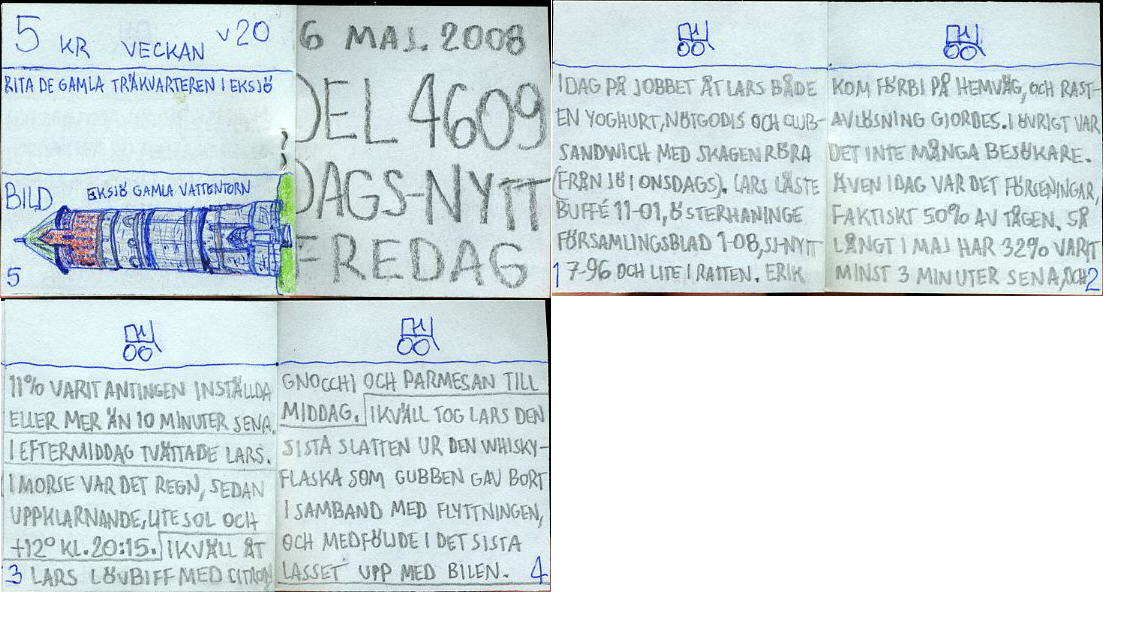 5 KR VECKAN v20
RITA DE GAMLA TRÄKVARTEREN I EKSJÖ
BILD EKSJÖ GAMLA VATTENTORN
5
6 MAJ. 2008
DEL 4609
DAGS-NYTT
FREDAG
I DAG PÅ JOBBET ÅT LARS BÅDE
EN YOGHURT, NÖTGODIS OCH CLUB-
SANDWICH MED SKAGENRÖRA
(FRÅN JÖ I ONSDAGS). LARS LÄSTE
BUFFÉ 11-01, ÖSTERHANINGE
FÖRSAMLINGSBLAD 1-08, SJ-NYTT
7-96 OCH LITE I RATTEN. ERIK
1
KOM FÖRBI PÅ HEMVÄG, OCH RAST-
AVLÖSNING GJORDES. I ÖVRIGT VAR
DET INTE MÅNGA BESÖKARE.
ÄVEN IDAG VAR DET FÖRSENINGAR,
FAKTISKT 50% AV TÅGEN. SÅ
LÅNGT I MAJ HAR 32% VARIT
MINST 3 MINUTER SENA, OCH
2
11% VARIT ANTINGEN INSTÄLLDA
ELLER MER ÄN 10 MINUTER SENA.
I EFTERMIDDAG TVÄTTADE LARS.
I MORSE VAR DET REGN, SEDAN
UPPKLARNANDE, LITE SOL OCH
+12° KL. 20:15. IKVÄLL ÅT
3 LARS LÖVBIFF MED CITRON
GNOCCHI OCH PARMESAN TILL
MIDDAG. IKVÄLL TOG LARS DEN
SISTA SLATTEN UR DEN WHISKY-
FLASKA SOM GUBBEN GAV BORT
I SAMBAND MED FLYTTNINGEN,
OCH MEDFÖLJDE I DET SISTA
LASSET UPP MED BILEN. 4